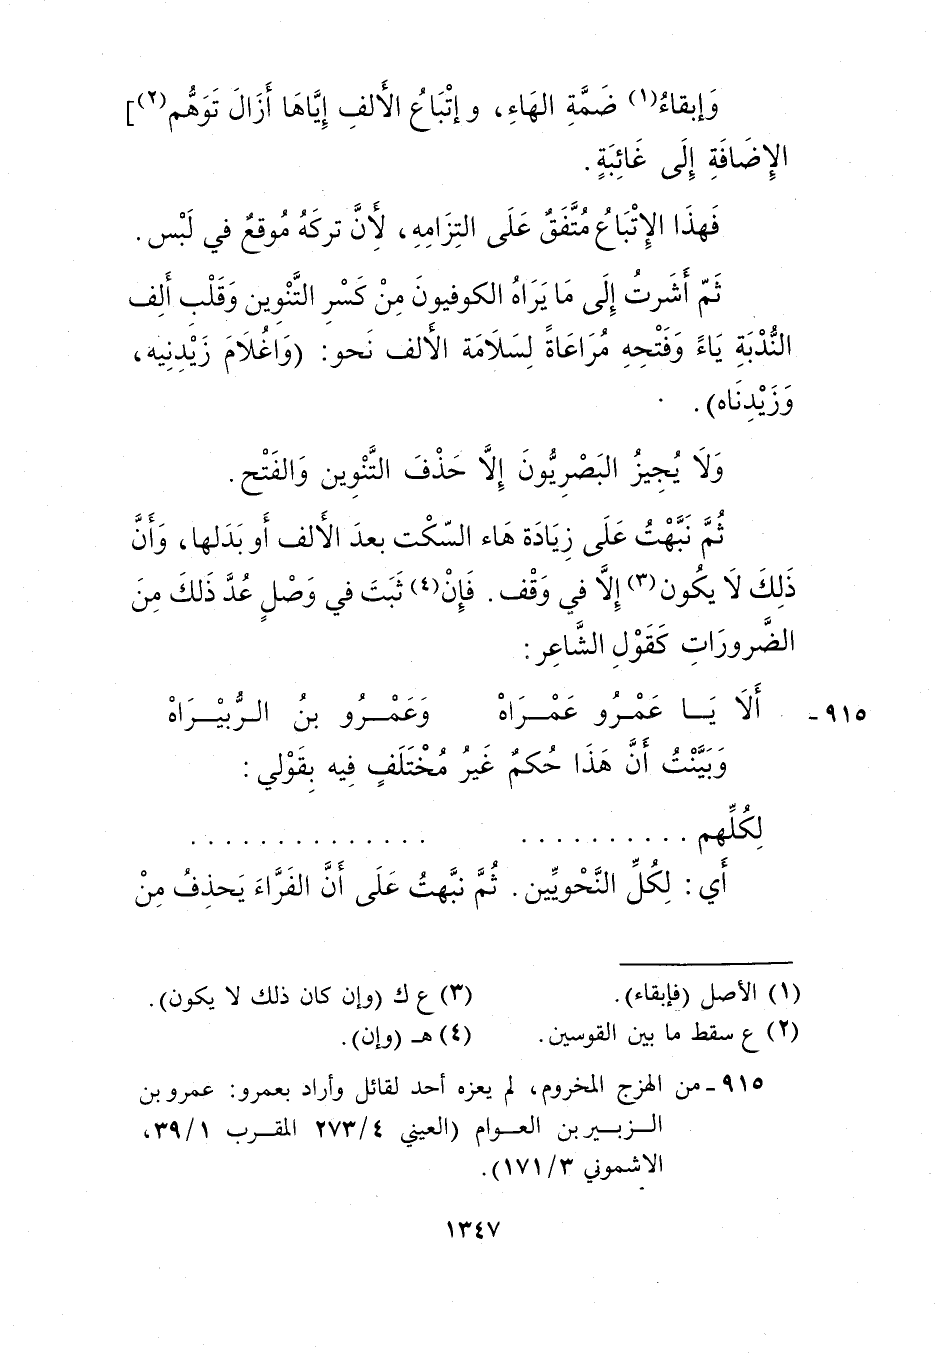 وَإبقاءُ(١) ضَمَّةِ الهَاءِ، وإتْبَاعُ الأَلفِ إيَّاهَا أَزَالَ تَوَهُّم(٢)]
الإِضَافَةِ إلَى غَائِبَةٍ.
فَهذَا الإِتْبَاعُ مُتَّفَقٌ عَلَى التِزَامِهِ، لأَنَّ تركَهُ مُوقعٌ في لَبْس.
ثَمّ أَشَرتُ إلَى مَا يَرَاهُ الكوفيونَ مِنْ كَسْرِ التَّنْوِين وَقَلْبِ أَلِف
النُّدْبَةِ يَاءً وَفَتْحِهِ مُرَاعَاةً لِسَلَامَة الأَلف نَحو: (وَاغُلَامَ زَيْدِنِيه،
وَزَيْدِنَاه).
وَلَا يُجِيزُ البَصْرِيُّونَ إلَّا حَذْفَ التَّنْوِينِ وَالفَتْح.
ثُمَّ نَبَّهْتُ عَلَى زِيَادَة هَاء السّكْت بعدَ الأَلف أو بَدَلها، وَأَنَّ
ذَلِكَ لَا يكُون(٣) إلَّا في وَقْف. فَإِنْ(٤) ثَبَتَ في وَصْلٍ عُدَّ ذَلكَ مِنَ
الضَّرورَاتِ كَقَوْلِ الشَّاعِر:
٩١٥- أَلَا يَــا عَمْـرُو عَمْــرَاهْ وَعَمْــرُو بنُ الـزُّبَيْــرَاهْ
وَبَيَّنْتُ أَنَّ هَذَا حُكمٌ غَيرُ مُخْتَلَفٍ فِيه بِقَوْلي:
لِكُلِّهم .......... ..............
أَي: لِكُلِّ النَّحْويِّين. ثُمَّ نبَّهتُ عَلَى أَنَّ الفَرَّاءَ يَحذِفُ مِنْ
(١) الأصل (فإبقاء). (٣) ع ك (وإن كان ذلك لا يكون).
(٢) ع سقط ما بين القوسين. (٤) هـ (وإن).
٩١٥ـ من الهزج المخروم، لم يعزه أحد لقائل وأراد بعمرو: عمرو بن
الــزبــير بن العــوام (العيني ٢٧٣/٤ المقــرب ٣٩/١،
الاشموني ١٧١/٣).
١٣٤٧